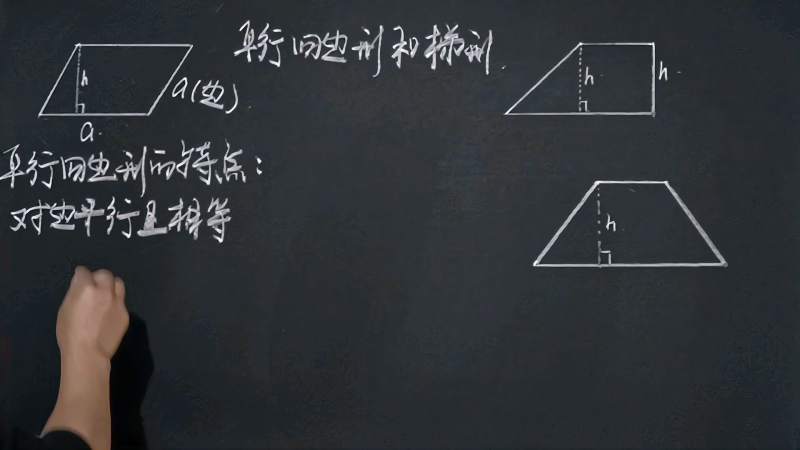 平行四边形和梯形
h
a(边)
a
h
h
平行四边形的特点：
对边平行且相等
h